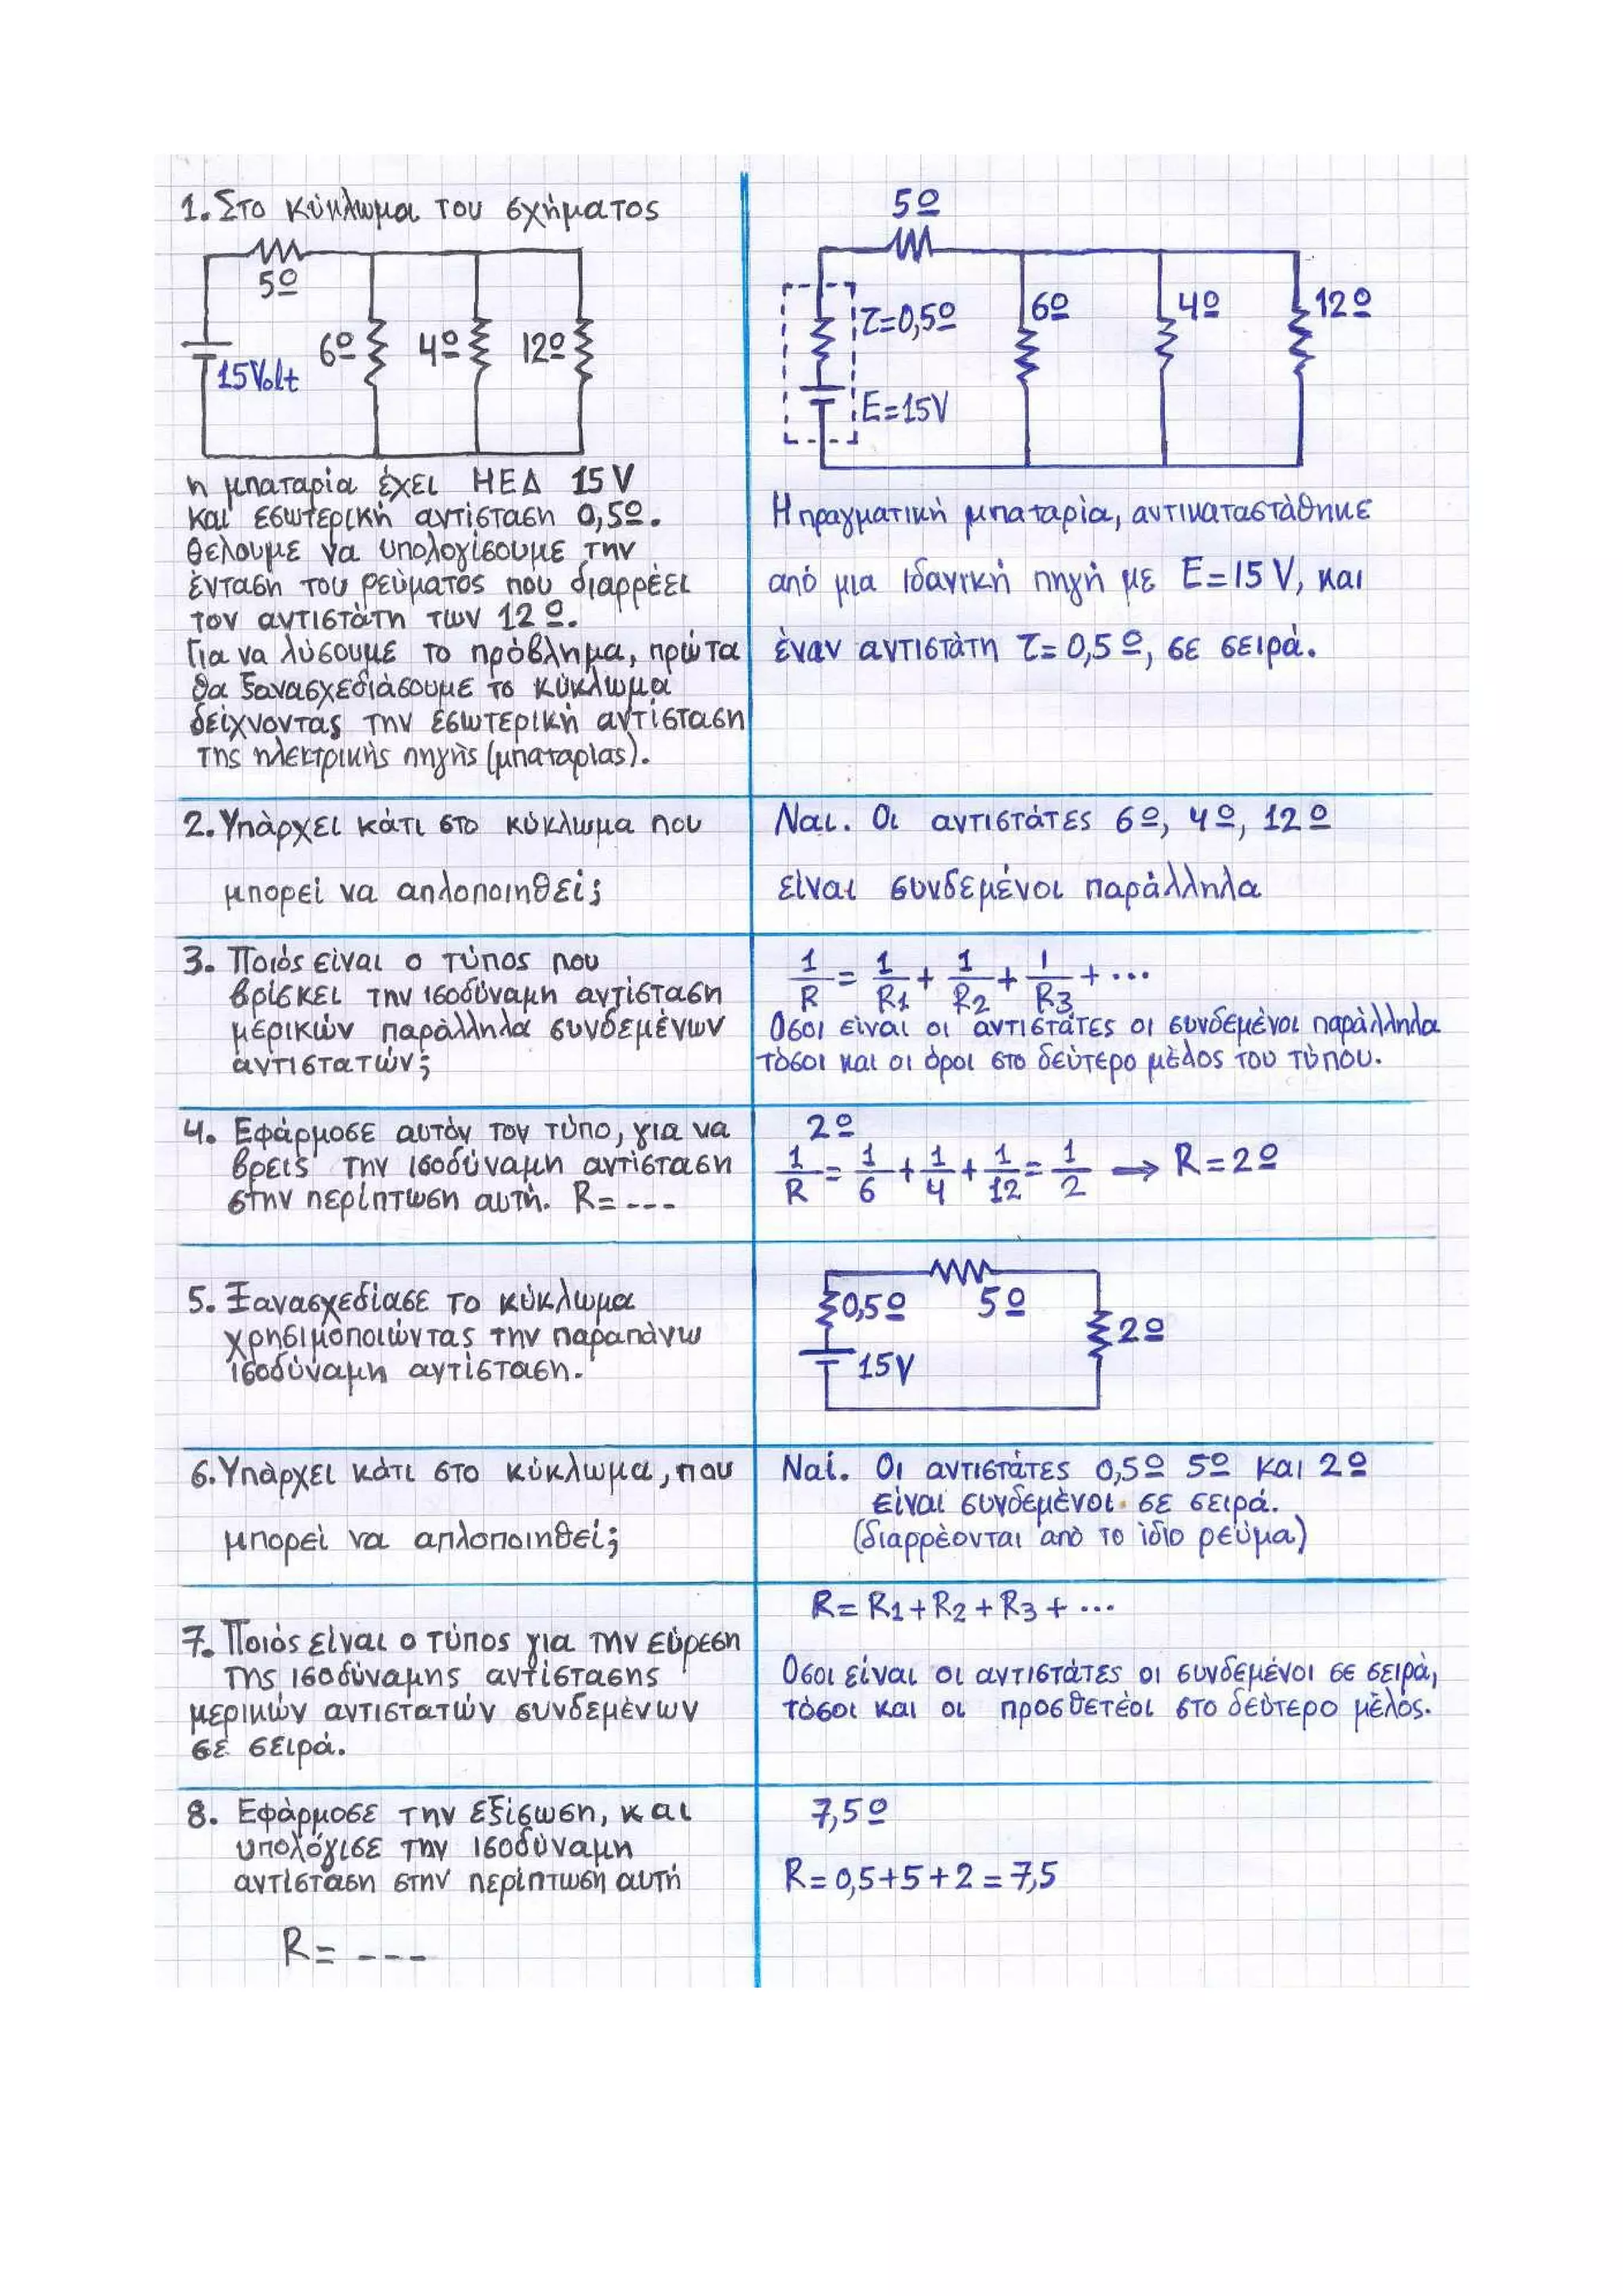 1. Στο κύκλωμα του σχήματος
5Ω
6Ω 4Ω 12Ω
15Volt
η μπαταρία έχει ΗΕΔ 15V
και εσωτερική αντίσταση 0,5Ω.
θέλουμε να υπολογίσουμε την
ένταση του ρεύματος που διαρρέει
τον αντιστάτη των 12Ω.
Για να λύσουμε το πρόβλημα, πρώτα
θα ξανασχεδιάσουμε το κύκλωμα
δείχνοντας την εσωτερική αντίσταση
της ηλεκτρικής πηγής (μπαταρίας).
5Ω
τ=0,5Ω 6Ω 4Ω 12Ω
E=15V
Η πραγματική μπαταρία, αντικαταστάθηκε
από μια ιδανική πηγή με E=15V, και
έναν αντιστάτη τ=0,5Ω, σε σειρά.
2. Υπάρχει κάτι στο κύκλωμα που
μπορεί να απλοποιηθεί;
Ναι. Οι αντιστάτες 6Ω, 4Ω, 12Ω
είναι συνδεμένοι παράλληλα
3. Ποιός είναι ο τύπος που
βρίσκει την ισοδύναμη αντίσταση
μερικών παράλληλα συνδεμένων
αντιστατών;
1/R = 1/R1 + 1/R2 + 1/R3 + ...
Όσοι είναι οι αντιστάτες οι συνδεμένοι παράλληλα
τόσοι και οι όροι στο δεύτερο μέλος του τύπου.
4. Εφάρμοσε αυτόν τον τύπο, για να
βρεις την ισοδύναμη αντίσταση
στην περίπτωση αυτή. R= ---
2Ω
1/R = 1/6 + 1/4 + 1/12 = 1/2 → R=2Ω
5. Ξανασχεδίασε το κύκλωμα
χρησιμοποιώντας την παραπάνω
ισοδύναμη αντίσταση.
0,5Ω 5Ω
2Ω
15V
6. Υπάρχει κάτι στο κύκλωμα, που
μπορεί να απλοποιηθεί;
Ναί. Οι αντιστάτες 0,5Ω 5Ω και 2Ω
είναι συνδεμένοι σε σειρά.
(διαρρέονται από το ίδιο ρεύμα)
7. Ποιός είναι ο τύπος για την εύρεση
της ισοδύναμης αντίστασης
μερικών αντιστατών συνδεμένων
σε σειρά.
R= R1+R2+R3+ ...
Όσοι είναι οι αντιστάτες οι συνδεμένοι σε σειρά,
τόσοι και οι προσθετέοι στο δεύτερο μέλος.
8. Εφάρμοσε την εξίσωση, και
υπολόγισε την ισοδύναμη
αντίσταση στην περίπτωση αυτή
R= ---
7,5Ω
R= 0,5+5+2=7,5